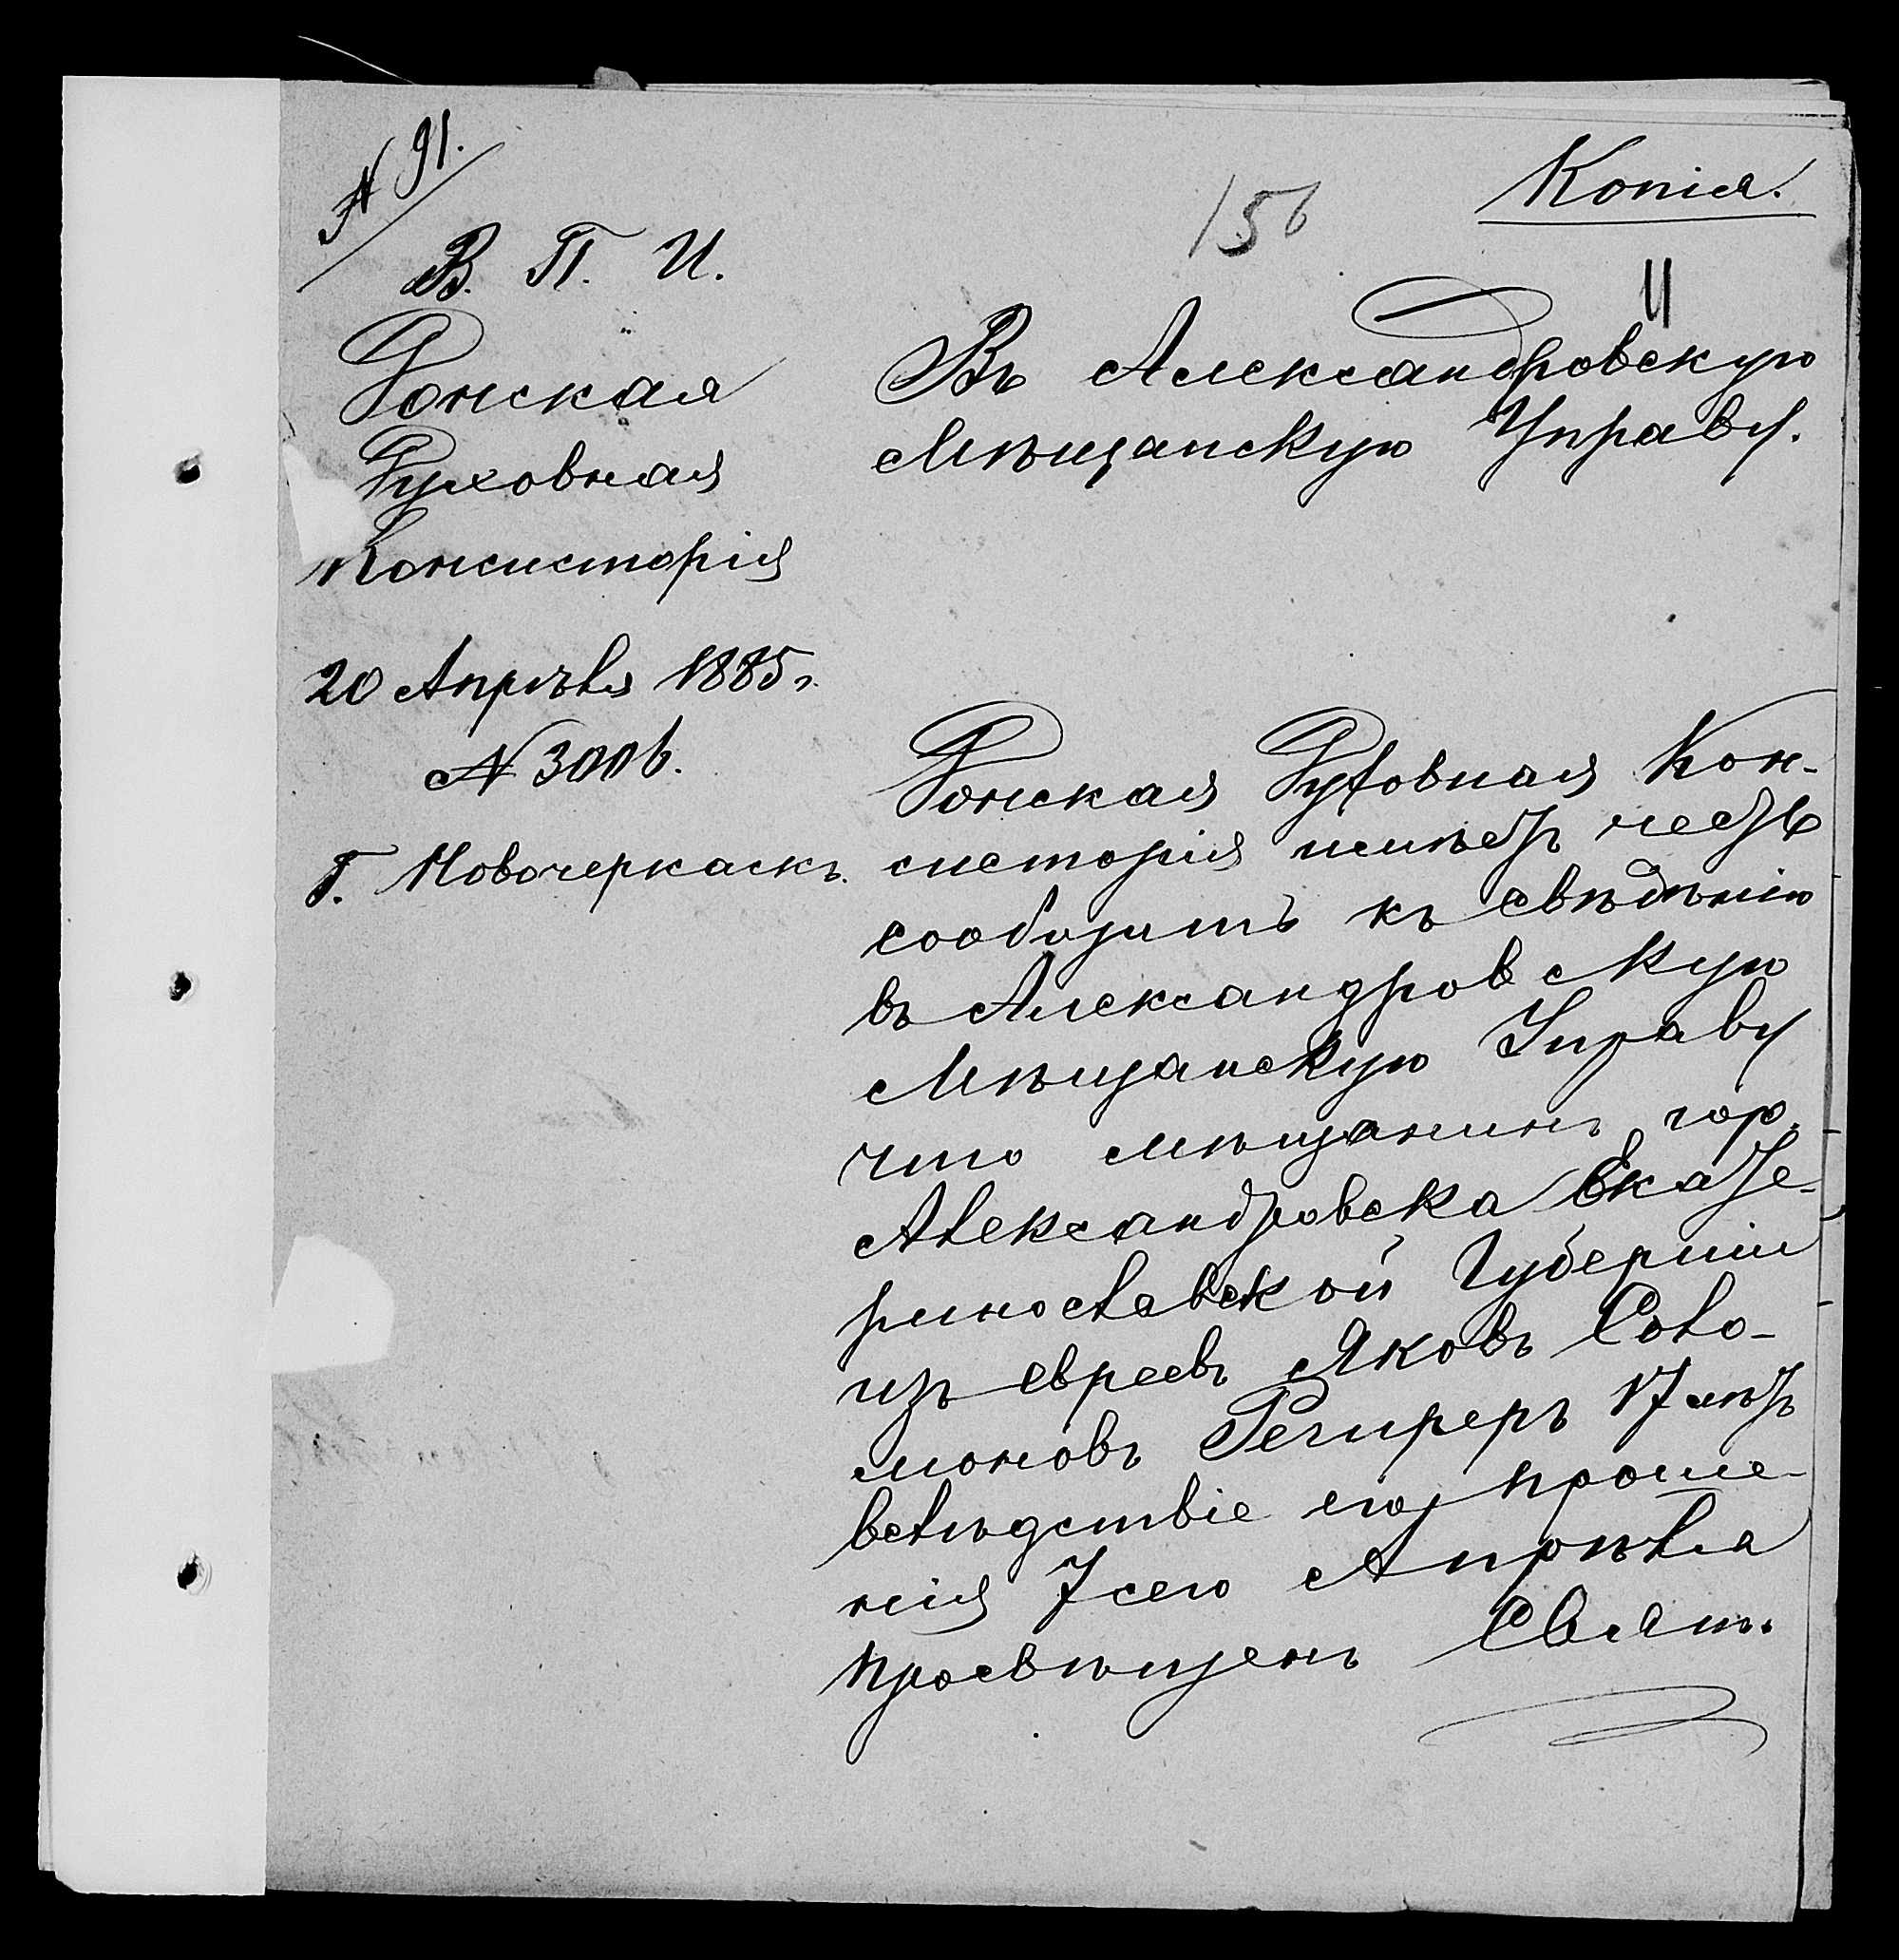 № 91.
Копія.
156
11
В. П. И.
Донская
Духовная
Консисторія
20 Апрѣля 1885 г.
№ 3006.
Г. Новочеркаскъ.
Въ Александровскую
Мѣщанскую Управу.
Донская Духовная Кон-
систорія имѣетъ честь
сообщить къ свѣдѣнію
въ Александровскую
Мѣщанскую Управу
что мѣщанинъ гор.
Александровска Екате-
ринославской Губерніи
изъ евреевъ Яковъ Соло-
моновъ 17 лѣтъ
вслѣдствіе его проше-
нія 7 сего Апрѣля
просвѣщенъ Свят.